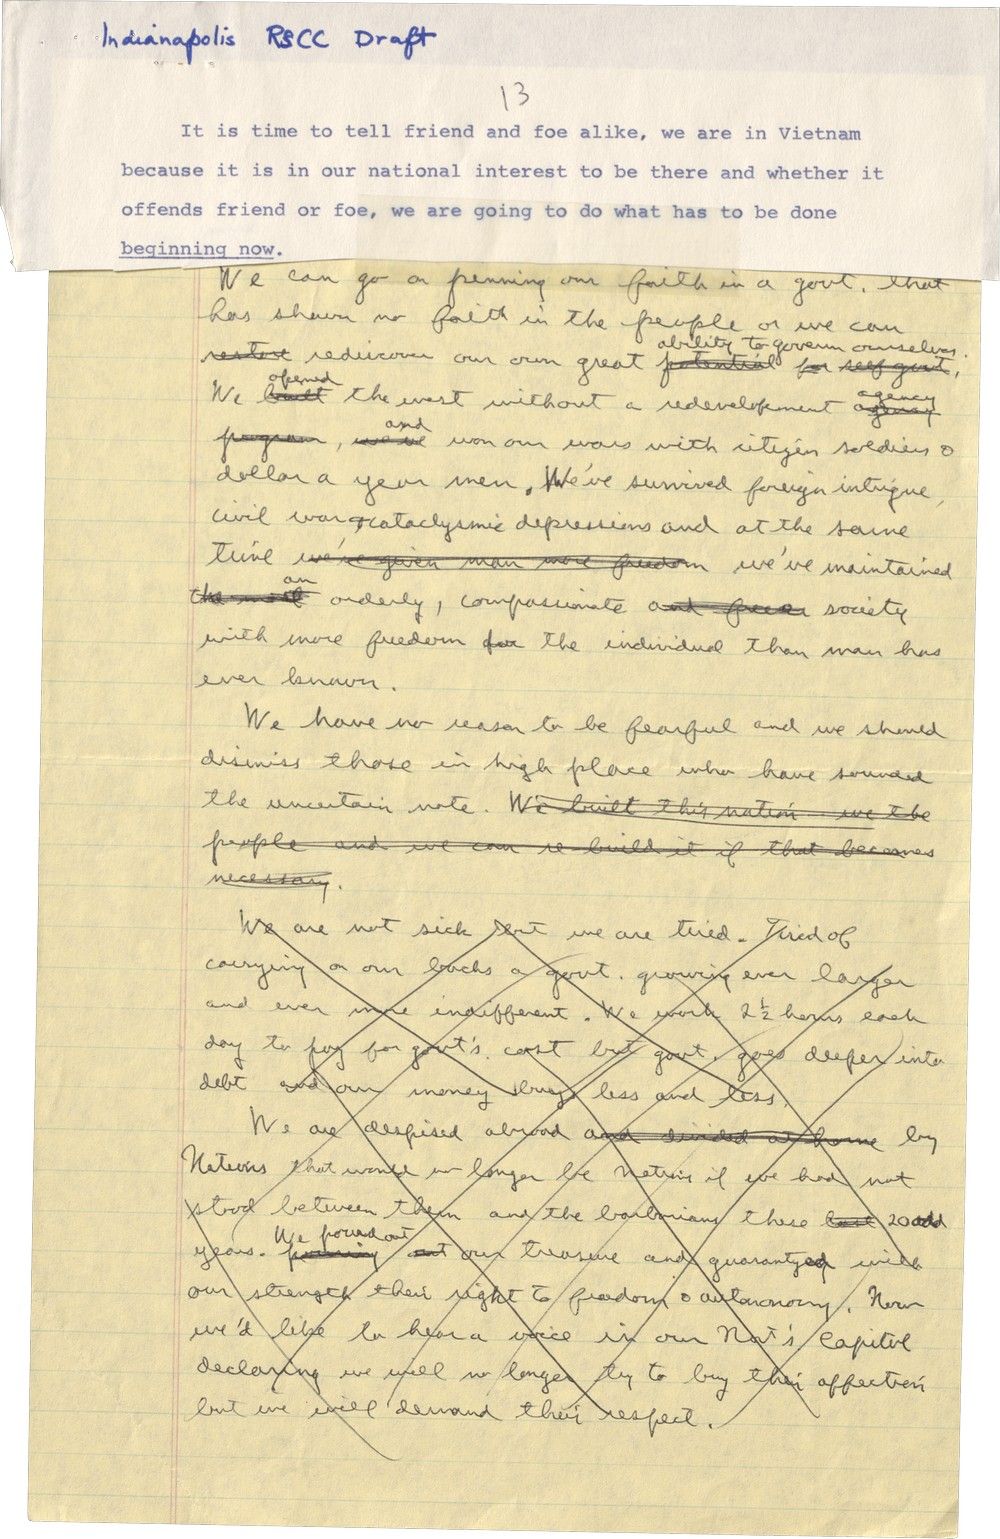 Indianapolis RSCC Draft
13
It is time to tell friend and foe alike, we are in Vietnam
because it is in our national interest to be there and whether it
offends friend or foe, we are going to do what has to be done
beginning now.
We can go on penning our faith in a govt. that
has shown no faith in the people or we can
ability to govern ourselves.
restore rediscover our own great potential for self govt.
opened agency
We built the west without a redevelopment agency
and
program, we've won our wars with citizen soldiers &
dollar a year men. We've survived foreign intrigue,
civil war, cataclysmic depressions and at the same
time we've given man more freedom we've maintained
an
the most orderly, compassionate and freer society
with more freedom for the individual than man has
ever known.
We have no reason to be fearful and we should
dismiss those in high place who have sounded
the uncertain note. We built this nation we the
people and we can re-build it if that becomes
necessary.
We are not sick but we are tired. Tired of
carrying on our backs a govt. growing ever larger
and ever more indifferent. We work 2½ hours each
day to pay for govt's. cost but govt. goes deeper into
debt and our money buys less and less.
We are despised abroad and divided at home by
Nations that would no longer be nations if we had not
stood between them and the barbarians these last 20 odd
We poured out
years. pouring out our treasure and guarantyed with
our strength their right to freedom & autonomy. Now
we'd like to hear a voice in our Nat's Capitol
declaring we will no longer try to buy their affection
but we will demand their respect.